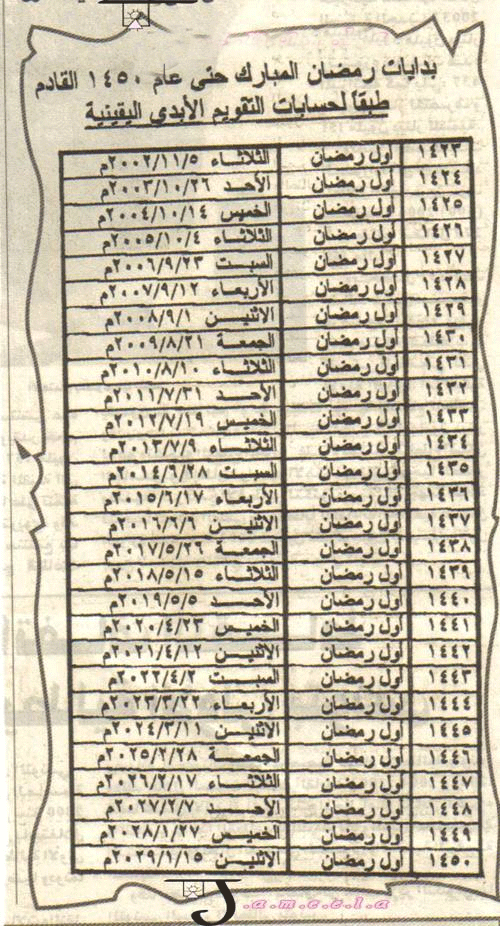 بدايات رمضان المبارك حتى عام ١٤٥٠ القادم
طبقاً لحسابات التقويم الأبدي اليقينية
١٤٢٣ أول رمضان الثلاثاء ٢٠٠٢/١١/٥م
١٤٢٤ أول رمضان الأحد ٢٠٠٣/١٠/٢٦م
١٤٢٥ أول رمضان الخميس ٢٠٠٤/١٠/١٤م
١٤٢٦ أول رمضان الثلاثاء ٢٠٠٥/١٠/٤م
١٤٢٧ أول رمضان السبت ٢٠٠٦/٩/٢٣م
١٤٢٨ أول رمضان الأربعاء ٢٠٠٧/٩/١٢م
١٤٢٩ أول رمضان الاثنين ٢٠٠٨/٩/١م
١٤٣٠ أول رمضان الجمعة ٢٠٠٩/٨/٢١م
١٤٣١ أول رمضان الثلاثاء ٢٠١٠/٨/١٠م
١٤٣٢ أول رمضان الأحد ٢٠١١/٧/٣١م
١٤٣٣ أول رمضان الخميس ٢٠١٢/٧/١٩م
١٤٣٤ أول رمضان الثلاثاء ٢٠١٣/٧/٩م
١٤٣٥ أول رمضان السبت ٢٠١٤/٦/٢٨م
١٤٣٦ أول رمضان الأربعاء ٢٠١٥/٦/١٧م
١٤٣٧ أول رمضان الاثنين ٢٠١٦/٦/٦م
١٤٣٨ أول رمضان الجمعة ٢٠١٧/٥/٢٦م
١٤٣٩ أول رمضان الثلاثاء ٢٠١٨/٥/١٥م
١٤٤٠ أول رمضان الأحد ٢٠١٩/٥/٥م
١٤٤١ أول رمضان الخميس ٢٠٢٠/٤/٢٣م
١٤٤٢ أول رمضان الاثنين ٢٠٢١/٤/١٢م
١٤٤٣ أول رمضان السبت ٢٠٢٢/٤/٢م
١٤٤٤ أول رمضان الأربعاء ٢٠٢٣/٣/٢٢م
١٤٤٥ أول رمضان الاثنين ٢٠٢٤/٣/١١م
١٤٤٦ أول رمضان الجمعة ٢٠٢٥/٢/٢٨م
١٤٤٧ أول رمضان الثلاثاء ٢٠٢٦/٢/١٧م
١٤٤٨ أول رمضان الأحد ٢٠٢٧/٢/٧م
١٤٤٩ أول رمضان الخميس ٢٠٢٨/١/٢٧م
١٤٥٠ أول رمضان الاثنين ٢٠٢٩/١/١٥م
J.a.m.e.e.l.a